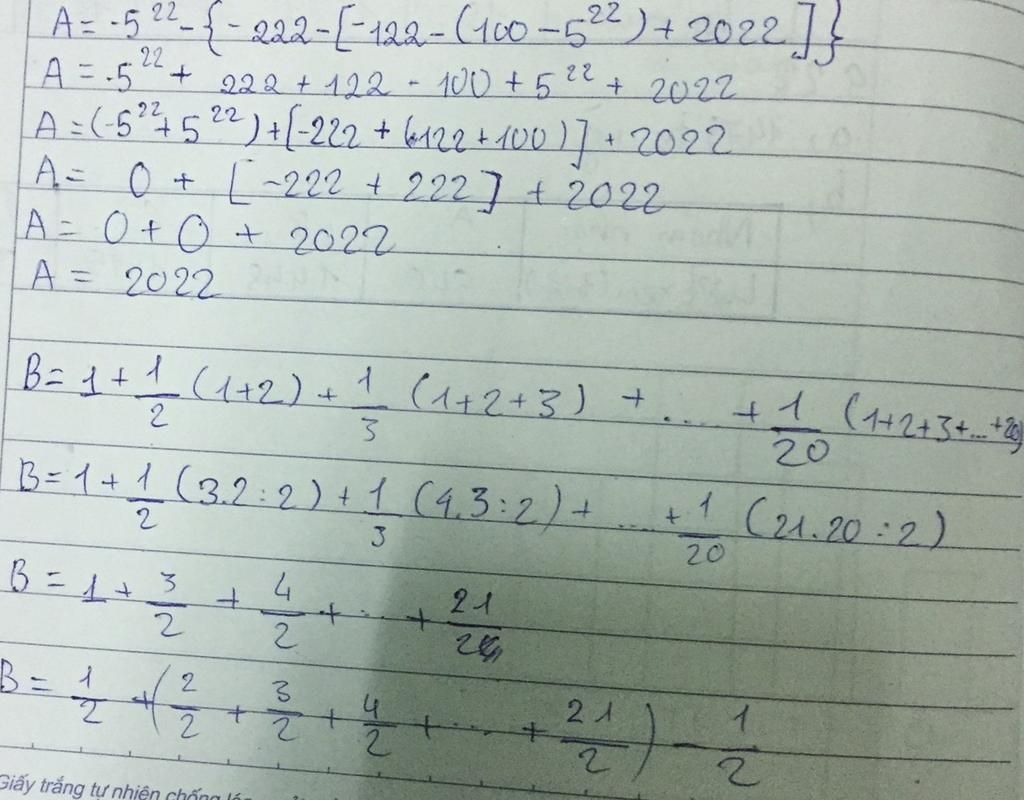 A = -5^22 - {-222 - [-122 - (100 - 5^22) + 2022]}
A = -5^22 + 222 + 122 - 100 + 5^22 + 2022
A = (-5^22 + 5^22) + [-222 + (122 + 100)] + 2022
A = 0 + [-222 + 222] + 2022
A = 0 + 0 + 2022
A = 2022
B = 1 + 1/2 (1+2) + 1/3 (1+2+3) + .... + 1/20 (1+2+3+...+20)
B = 1 + 1/2 (3.2:2) + 1/3 (4.3:2) + .... + 1/20 (21.20:2)
B = 1 + 3/2 + 4/2 + ... + 21/2
B = 1/2 + (2/2 + 3/2 + 4/2 + ... + 21/2) - 1/2
Giấy trắng tự nhiên chống